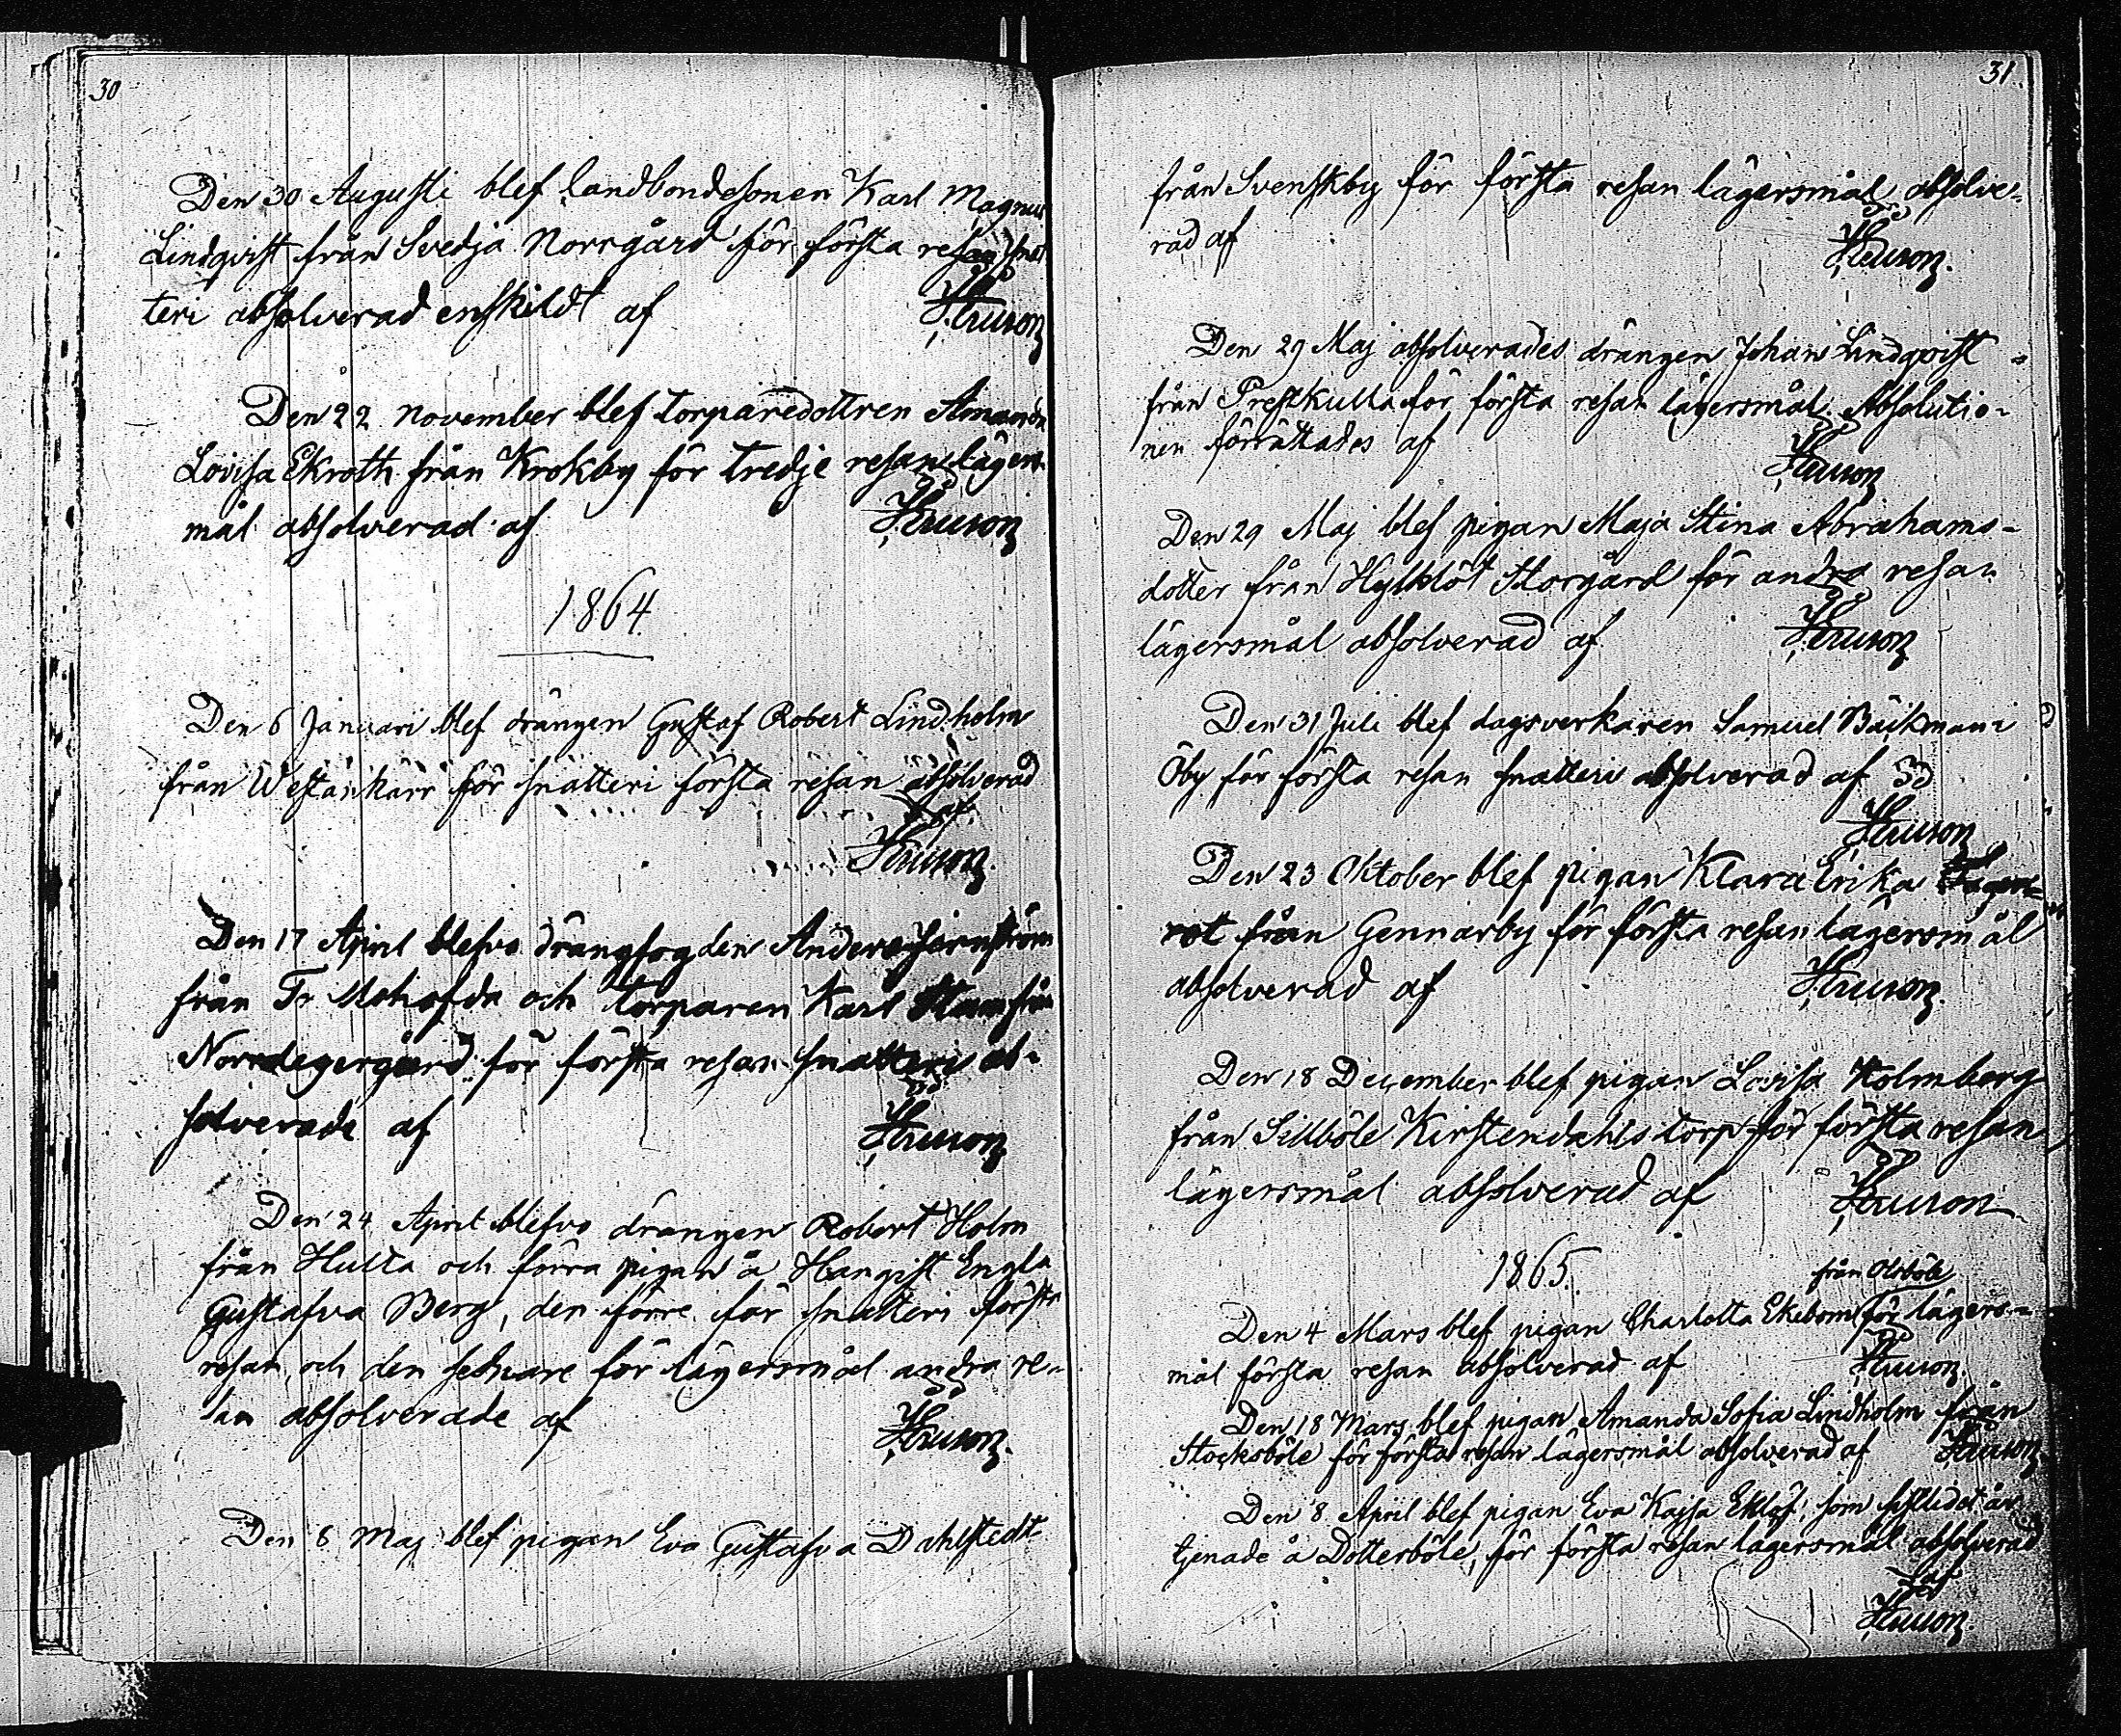 30
Den 30 Augusti blef landbondesonen Karl Magnus
Lindqvist från Svedja Norrgård för första resan snat
teri absolverad enskildt af
Den 22 November blef torparedottren Amanda
Lovisa Ekroth från Krokby för tredje resan lägers
mål absolverad af
1864.
Den 6 Januari blef drängen Gustaf Robert Lindholm
från Westankärr för snatteri första resan absolverad
af
Den 17 April blefvo drängfogden Anders Järnström
från Tr. och torparen Karl Stam från
Norrdegergård för första resan snatteri ab-
solverade af
Den 24 April blefvo drängen Robert Holm
från Hulta och förra pigan å Hangist Engla
Gustafva Berg, den förre för snatteri första
resan, och den sednare för lägersmål andra re-
san absolverade af
Den 8 Maj blef pigan Eva Gustafva Dahlstedt
31.
från Svenskby för första resan lägersmål absolve-
rad af
Den 29 Maj absolverades drängen Johan Lindqvist
från Prestkulla för första resan lägersmål. Absolutio-
nen förrättades af
Den 29 Maj blef pigan Maja Stina Abrahams-
dotter från Storgård för andra resan
lägersmål absolverad af
Den 31 Juli blef dagsverkaren Samuel Bäckman i
Öby för första resan snatteri absolverad af
Den 23 Oktober blef pigan Klara Erika Fager-
rot från Gennarby för första resan lägersmål
absolverad af
Den 18 December blef pigan Lovisa Holmberg
från Sillböle Kirstendahls torp för första resan
lägersmål absolverad af
1865.
från Olsböle
Den 4 Mars blef pigan Charlotta Ekebom för lägers-
mål första resan absolverad af
Den 18 Mars blef pigan Amanda Sofia Lindholm från
Stocksböle för första resan lägersmål absolverad af
Den 8 April blef pigan Eva Kajsa Eklöf, som sistlidet år
tjenade å Dotterböle, för första resan lägersmål absolverad
af